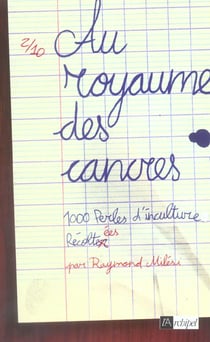 2/10
Au
royaume
des
cancres
1000 Perles d'inculture
Récoltées
par Raymond Milési
l'Archipel